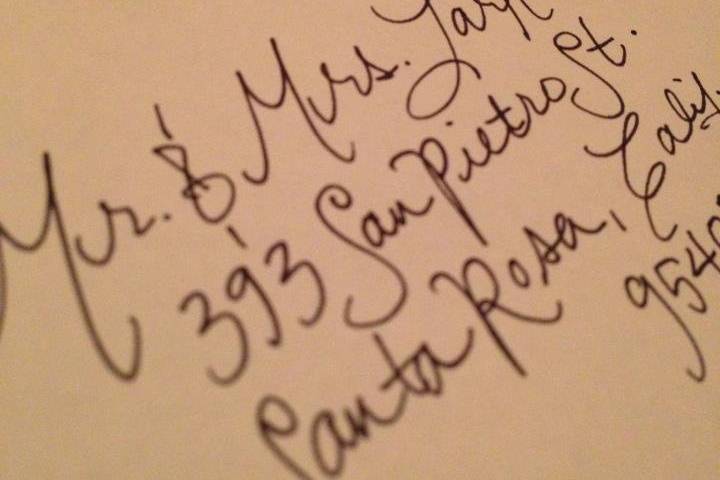 Mr. & Mrs.
393 San Pietro St.
Santa Rosa, Calif.